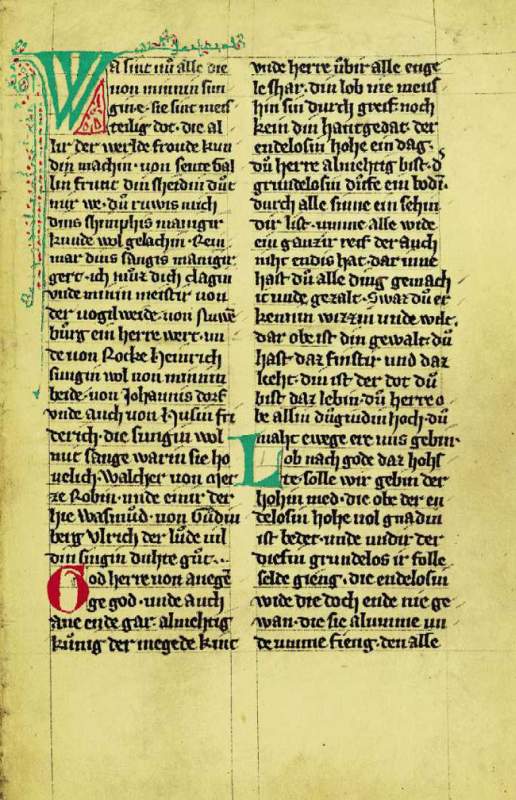 Wa sint nů alle die
von minnin sun
gin· e· sie sint meis
teilig dot· die al
lir der werlde froude kun
din machin· von sente Gal
lin frunt din sheidin důt
mir we· dů ruwis mich
dins shimphis manigir
kunde wol gelachin· Rein
mar dins sangis manigir
gert· ich můz dich clagin
vnde minin meistir von
der vogilweide· von Nuwē
bůrg ein herre wert· vn
de von Rocke heinrich
sungin wol von minnin
beide· von Johannis dorf
vnde auch von Husin fri
derich· die sungin wol
mit sange warin sie ho
velich· Walcher von
ze Robin· vnde einir der
hie Wasmůd· von Gůdin
berg Vlrich der lůde vil
din singin duhte gůt·
God herre von anegē
ge god· vnde auch
ane ende gar· almehtig
kůnig der megede kint
vnde herre ůbir alle enge
leshar· din lob nie meis
hin sin durch greif· noch
kein din hantgedat· der
endelosin hohe ein dag·
dů herre almehtig bist· d
grundelosin dife ein bodī·
durch alle sinne ein sehin
dir list· vmme alle wide
ein ganzir reif der auch
niht endis hat· dar inne
hast dů alle ding gemach
it vnde gezalt· Swaz dů er
kennin wizzin vnde wilt·
dar obe ist din gewalt· dů
hast daz finstir vnd daz
lieht· din ist der dot dů
bist daz lebin· dů herre o
be allin důgindin hoch· dů
maht ewege ere vns gebin·
Lob nach gode daz hohs
te· solle wir gebin der
hohin med· die obe der en
delosin hohe vol gnadin
ist bedet· vnde vndir der
diefin grundelos ir folle
selde gieng· die endelosin
wide die doch ende nie ge
wan· die sie alvmme un
de vmme fieng· den alle